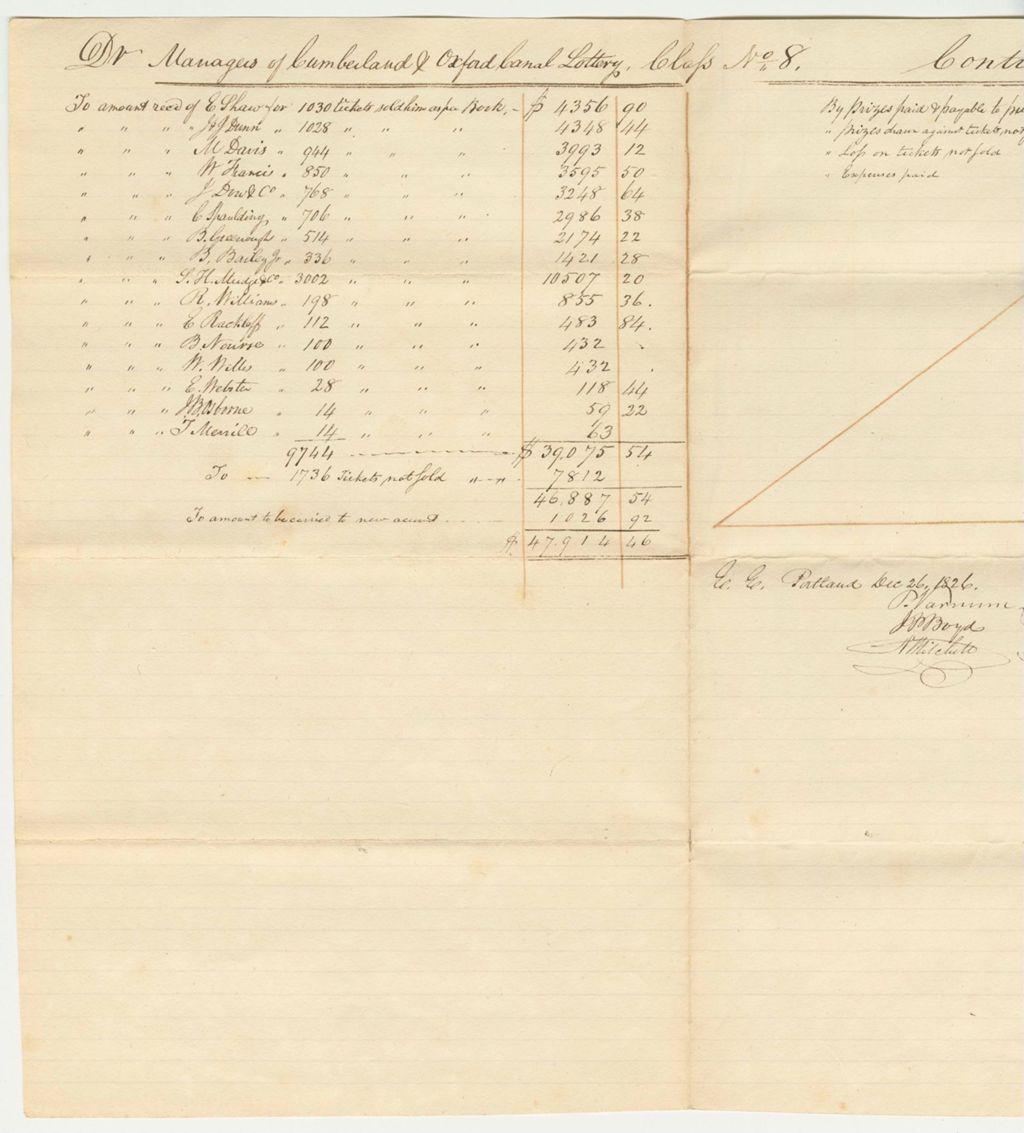 Dr Managers of Cumberland & Oxford Canal Lottery, Class No 8.
To amount recd of E Shaw for 1030 tickets sold him as per Book, - $ 4356 90
" " " " J & J Dunn " 1028 " " " 4348 44
" " " M Davis " 944 " " " 3993 12
" " " W Francis " 850 " " " 3595 50
" " " J Dow & Co " 768 " " " 3248 64
" " " C Spaulding " 706 " " " 2986 38
" " " B. Greenough " 514 " " " 2174 22
" " " B. Bailey Jr " 336 " " " 1421 28
" " " S. H. Mudge & Co " 3002 " " " 10507 20
" " " R. Williams " 198 " " " 855 36.
" " " E Rackleff " 112 " " " 483 84.
" " " B. Nourse " 100 " " " 432 .
" " " W. Willis " 100 " " " 432 .
" " " E. Webster " 28 " " " 118 44
" " " J. B. Osborne " 14 " " " 59 22
" " " T Merrill " 14 " " " 63
9744 $ 39.075 54
To 1736 Tickets not sold " " 7812
46.887 54
To amount to be carried to new account 1026 92
$ 47.914 46
Contr
By Prizes paid & payable to
" prizes drawn against tickets not
" Loss on tickets not sold
" Expenses paid
E. E. Portland Dec 26, 1826.
P. Varnum
J P Boyd
N Mitchell